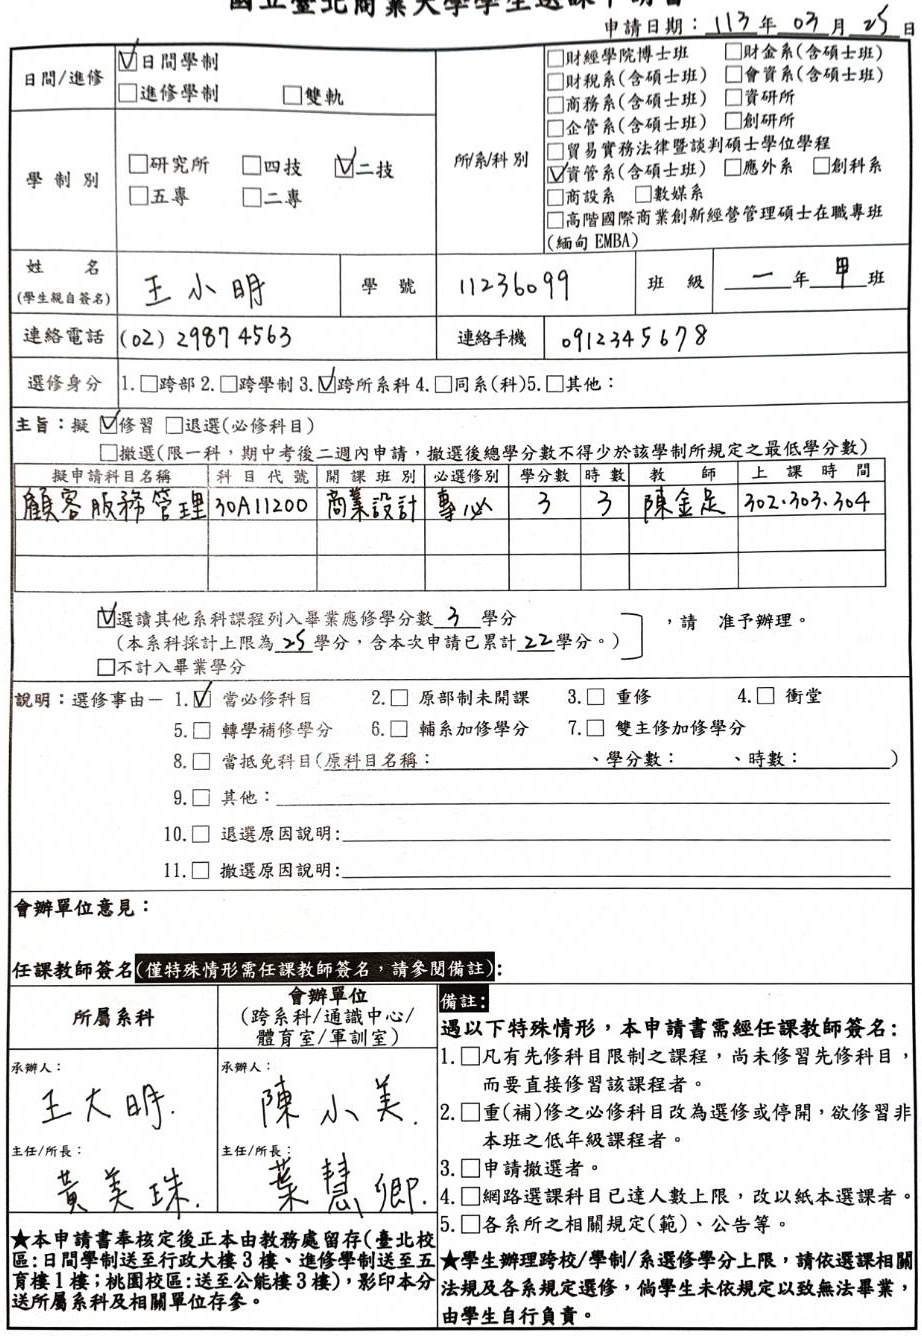 國立臺北商業大學學生選課申請書
申請日期：113年03月25日
日間/進修
☑日間學制
□進修學制 □雙軌
學制別
□研究所 □四技 ☑二技
□五專 □二專
所/系/科別
□財經學院博士班 □財金系(含碩士班)
□財稅系(含碩士班) □會資系(含碩士班)
□商務系(含碩士班) □資研所
□企管系(含碩士班) □創研所
□貿易實務法律暨談判碩士學位學程
☑資管系(含碩士班) □應外系 □創科系
□商設系 □數媒系
□高階國際商業創新經營管理碩士在職專班
(緬甸EMBA)
姓 名
(學生親自簽名)
王小明
學 號
11236099
班 級
一年甲班
連絡電話
(02) 29874563
連絡手機
0912345678
選修身分
1.□跨部 2.□跨學制 3.☑跨所系科 4.□同系(科) 5.□其他：
主旨：擬 ☑修習 □退選(必修科目)
□撤選(限一科，期中考後二週內申請，撤選後總學分數不得少於該學制所規定之最低學分數)
擬申請科目名稱 科目代號 開課班別 必選修別 學分數 時數 教 師 上課時間
顧客服務管理 30A11200 商業設計 專必 3 3 陳金足 302.303.304
☑選讀其他系科課程列入畢業應修學分數 3 學分
(本系科採計上限為 25 學分，含本次申請已累計 22 學分。)
，請 准予辦理。
□不計入畢業學分
說明：選修事由－ 1.☑ 當必修科目 2.□ 原部制未開課 3.□ 重修 4.□ 衝堂
5.□ 轉學補修學分 6.□ 輔系加修學分 7.□ 雙主修加修學分
8.□ 當抵免科目(原科目名稱： 、學分數： 、時數： )
9.□ 其他：
10.□ 退選原因說明:
11.□ 撤選原因說明:
會辦單位意見：
任課教師簽名(僅特殊情形需任課教師簽名，請參閱備註):
所屬系科
會辦單位
(跨系科/通識中心/
體育室/軍訓室)
承辦人：
王大明.
承辦人：
陳小美.
主任/所長：
黃美珠.
主任/所長：
葉慧卿.
★本申請書奉核定後正本由教務處留存(臺北校
區:日間學制送至行政大樓3樓、進修學制送至五
育樓1樓；桃園校區:送至公能樓3樓)，影印本分
送所屬系科及相關單位存參。
備註:
遇以下特殊情形，本申請書需經任課教師簽名:
1.□凡有先修科目限制之課程，尚未修習先修科目，
而要直接修習該課程者。
2.□重(補)修之必修科目改為選修或停開，欲修習非
本班之低年級課程者。
3.□申請撤選者。
4.□網路選課科目已達人數上限，改以紙本選課者。
5.□各系所之相關規定(範)、公告等。
★學生辦理跨校/學制/系選修學分上限，請依選課相關
法規及各系規定選修，倘學生未依規定以致無法畢業，
由學生自行負責。